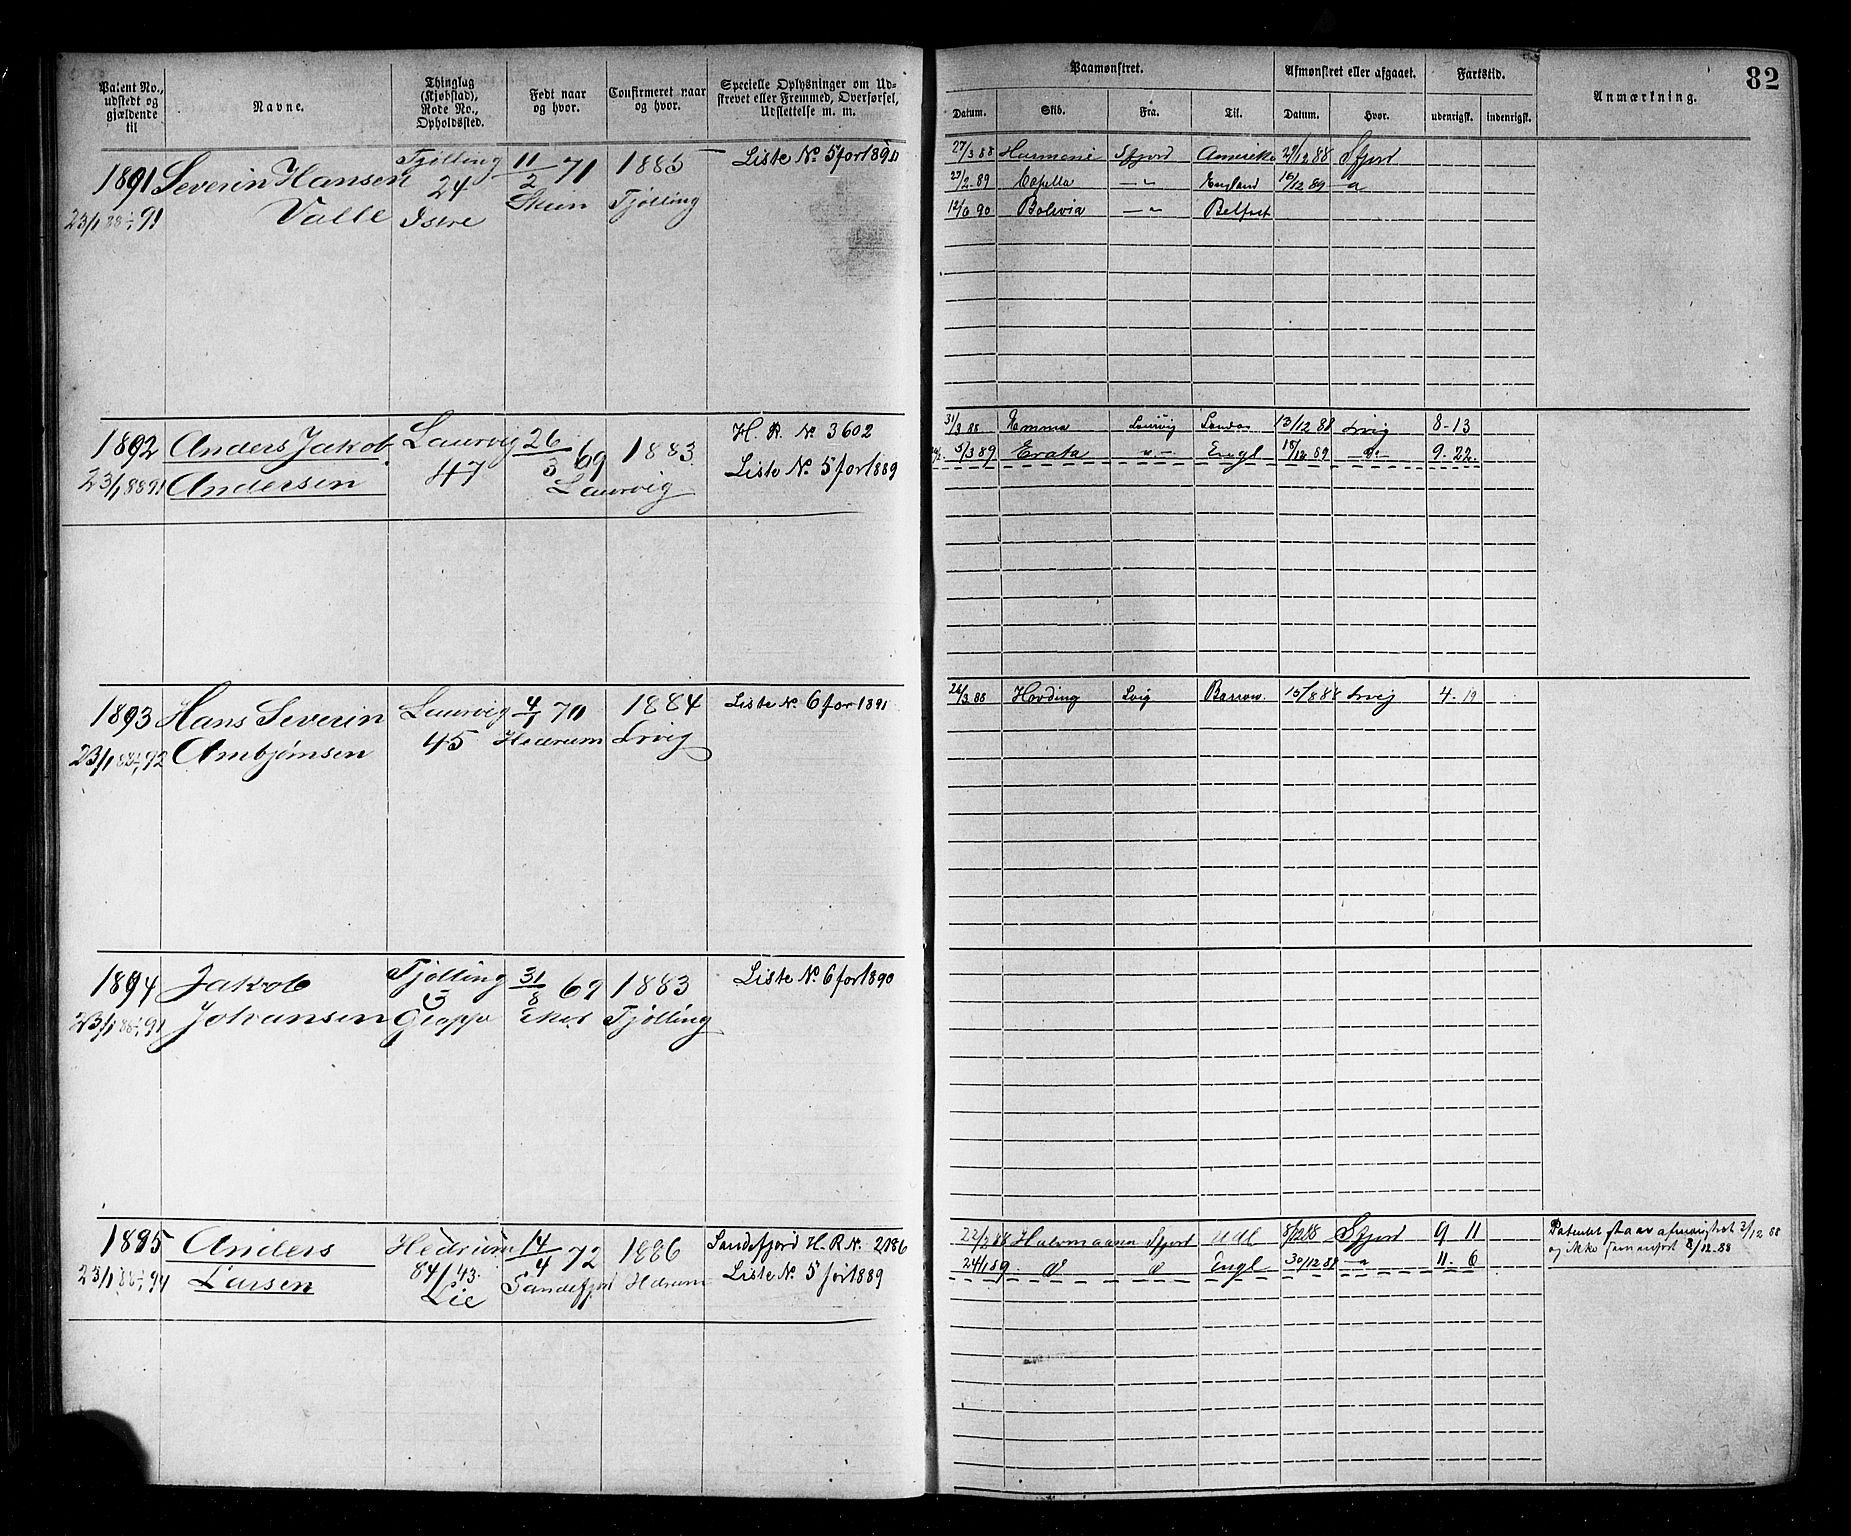 82
Patent No., udstedt og gjældende til
Navne.
Thinglag (Kjøbstad), Rode No., Opholdssted.
Født naar og hvor.
Confirmeret naar og hvor.
Specielle Oplysninger om Udskrevet eller Fremmed, Overførsel, Udslettelse m. m.
Paamønstret.
Afmønstret eller afgaaet.
Fartstid.
Anmærkning.
Datum. Skib. Fra. Til. Datum. Hvor. udenrigsk. indenrigsk.
1891 Severin Hansen Tjølling 11/2 71 1885 Liste No. 5 for 1890
23/1 88 91 Valle 24 Tjølling
27/3 88 Sfjord Amerika 88 Sfjord
27/2 89 Capella —"— England 12 89
12/6 90 Bolivia —"— Belfast
1892 Anders Jakob Laurvig 26/3 69 1883 H. R. No 3602
23/1 88 91 Andersen 47 Laurvig Liste No. 5 for 1889
31/3 88 Emma Laurvig London 13/12 88 Lrvig 8-13
5/3 89 Erata Engl 9-22
1893 Hans Severin Laurvig 4/1 70 1884 Liste No. 6 for 1891
23/1 88 92 Ambjørnsen 45 Hedrum Lrvig
26/3 88 Hovding Lvig Barrow. 15/8 88 Lrvig 4-19
1894 Jakob Tjølling 31/8 69 1883 Liste No. 6 for 1890
23/1 88 91 Johansen Tjølling
1895 Anders Hedrum 14/4 72 1886 Sandefjord H. R. No. 2186
23/1 88 94 Larsen 84/43. Sandefjord Hedrum Liste No. 5 for 1889
Lie
22/2 88 Sfjord Sfjord 9 11
24/1 89 Engl 30/12 88 11-6
Patentet staar afmønstret 3/12 88
og ikke 8/12 88